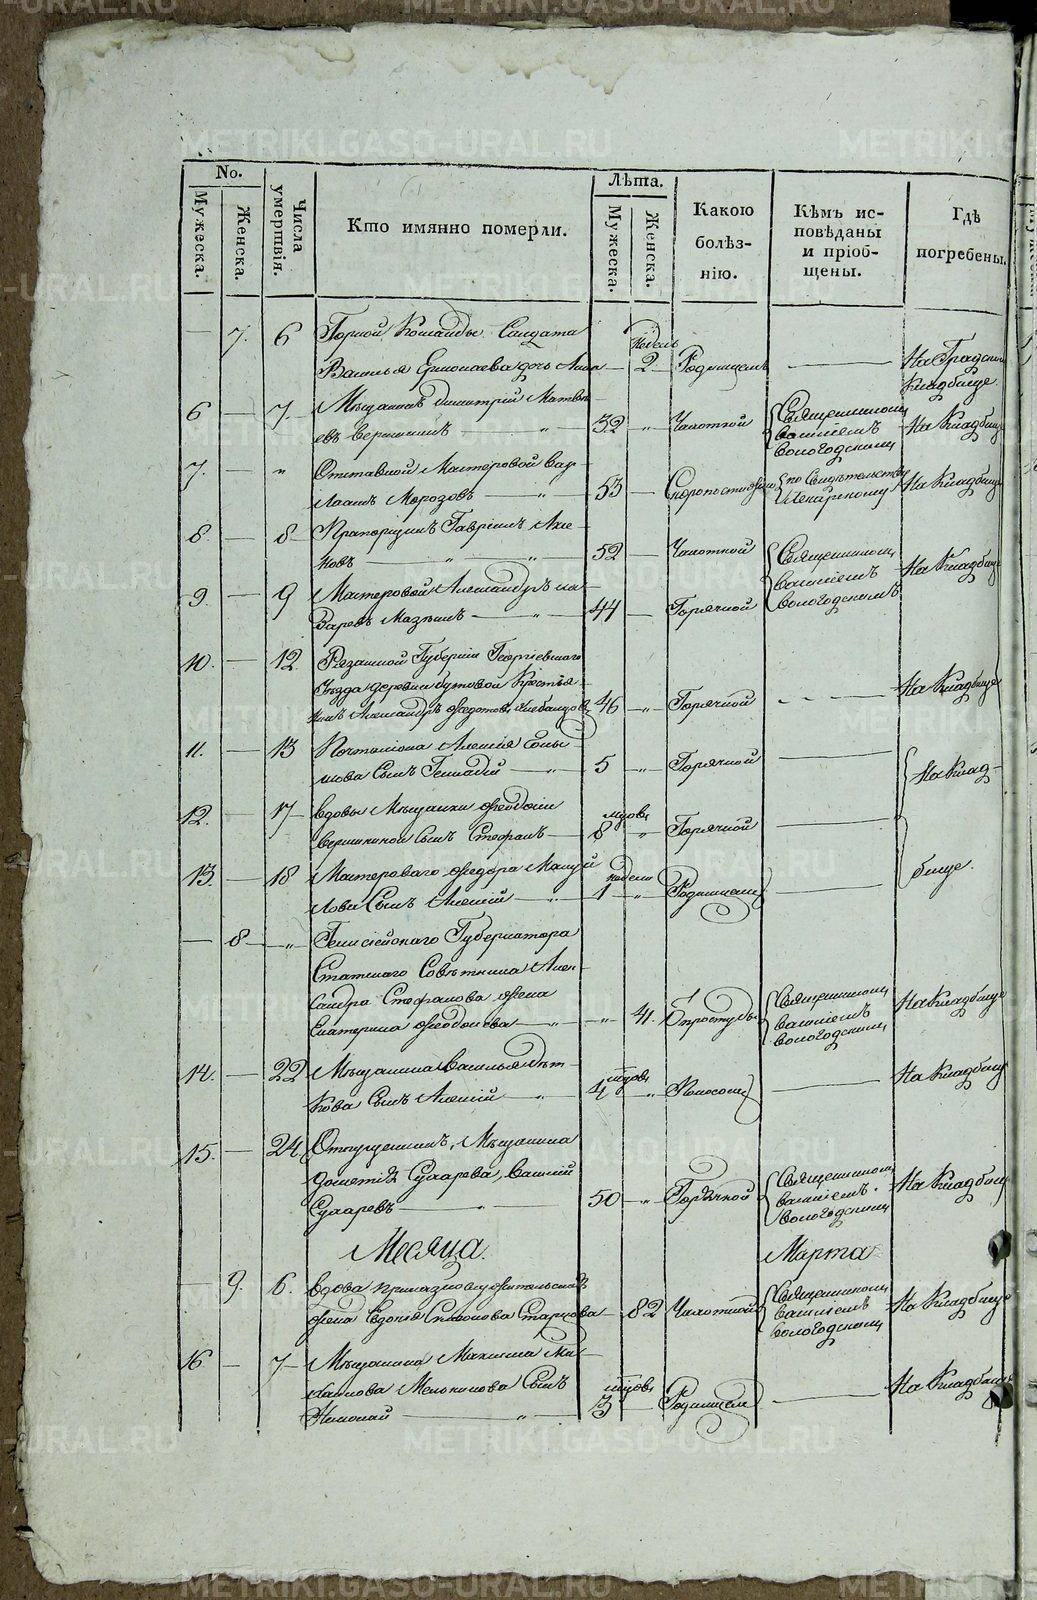 METRIKI.GASO-URAL.RU
No.
Мужеска.
Женска.
Числа умертвія.
Кто имянно померли.
Лѣта.
Мужеска.
Женска.
Какою болѣз-нію.
Кѣмъ ис-повѣданы и пріоб-щены.
Гдѣ погребены.
— 7. 6 Горной Команды Солдата недель
Василья Ермолаева дочь Анна — 2 Родимцемъ — На Градском
Кладбище
6 — 7. Мѣщанинъ Димитрій Матвѣ-
евъ Вершининъ — „ — 32 „ Чахоткой Священником Василіемъ Вологодским На Кладбище
7. — „ Отставной Мастеровой Вар-
лаамъ Морозовъ — „ — 53 — Скоропостижно по Свидѣтельству Лекарскому На Кладбище
8. — 8 Прапорщикъ Гавріилъ
новъ — „ — 52 — Чахоткой Священником Василіемъ Вологодскимъ На Кладбище
9. — 9 Мастеровой Александръ На-
заревъ — „ — 44 — Горячкой
10. — 12. Рязанской Губерніи Георгіевскаго
Уѣзда деревни Крестья-
нинъ Александръ Федотовъ 46 „ Горячкой - - — На Кладбище
11. — 13 Почталіона Алексѣя
Сынъ Геннадій — „ — 5 „ Горячкой — На Клад-
12. — 17 Вдовы Мѣщанки Феодосіи мцовъ
Вершининой Сынъ Стефанъ — 8 „ Горячкой —
13. — 18 Мастероваго Федора Мануй- недели
лова Сынъ Алексій — „ — 1 „ Родимцемъ — бище.
— 8 — „ Енисейскаго Губернатора
Статскаго Совѣтника Алек-
сандра Стефанова жена
Екатерина Федосѣева — „ — „ 41. Простуды Священником Василіемъ Вологодским На Кладбище
14. — 22 Мѣщанина Василья мцовъ
кова Сынъ Алексій „ 4 „ Поносом — На Кладбище
15. — 24. Отпущенникъ, Мѣщанина
Сухарева, Василій
Сухаревъ — „ — 50 „ Горячкой Священником Василіемъ Вологодским На Кладбище
Месяца. Марта
— 9. 6. Вдова приказнослужительская
жена Евдокія Старцова — 82 Чахоткой Священником Василіемъ Вологодским На Кладбище
16 — 7 Мѣщанина Максима Ми-
хайлова Сынъ мцовъ
Николай — „ — 3 „ Родимцем — На Кладбище